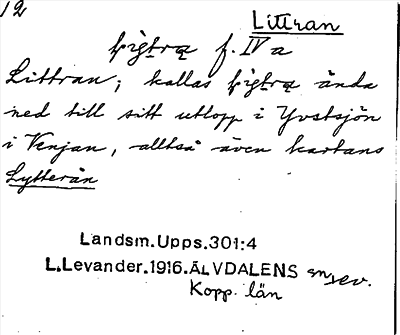 12
Littran
f. IV a
Littran; kallas ända
ned till sitt utlopp i Yvstsjön
i Venjan, alltså även kartans
Lytterån
Landsm.Upps.301:4
L.Levander.1916.ÄLVDALENS snrev.
Kopp. län